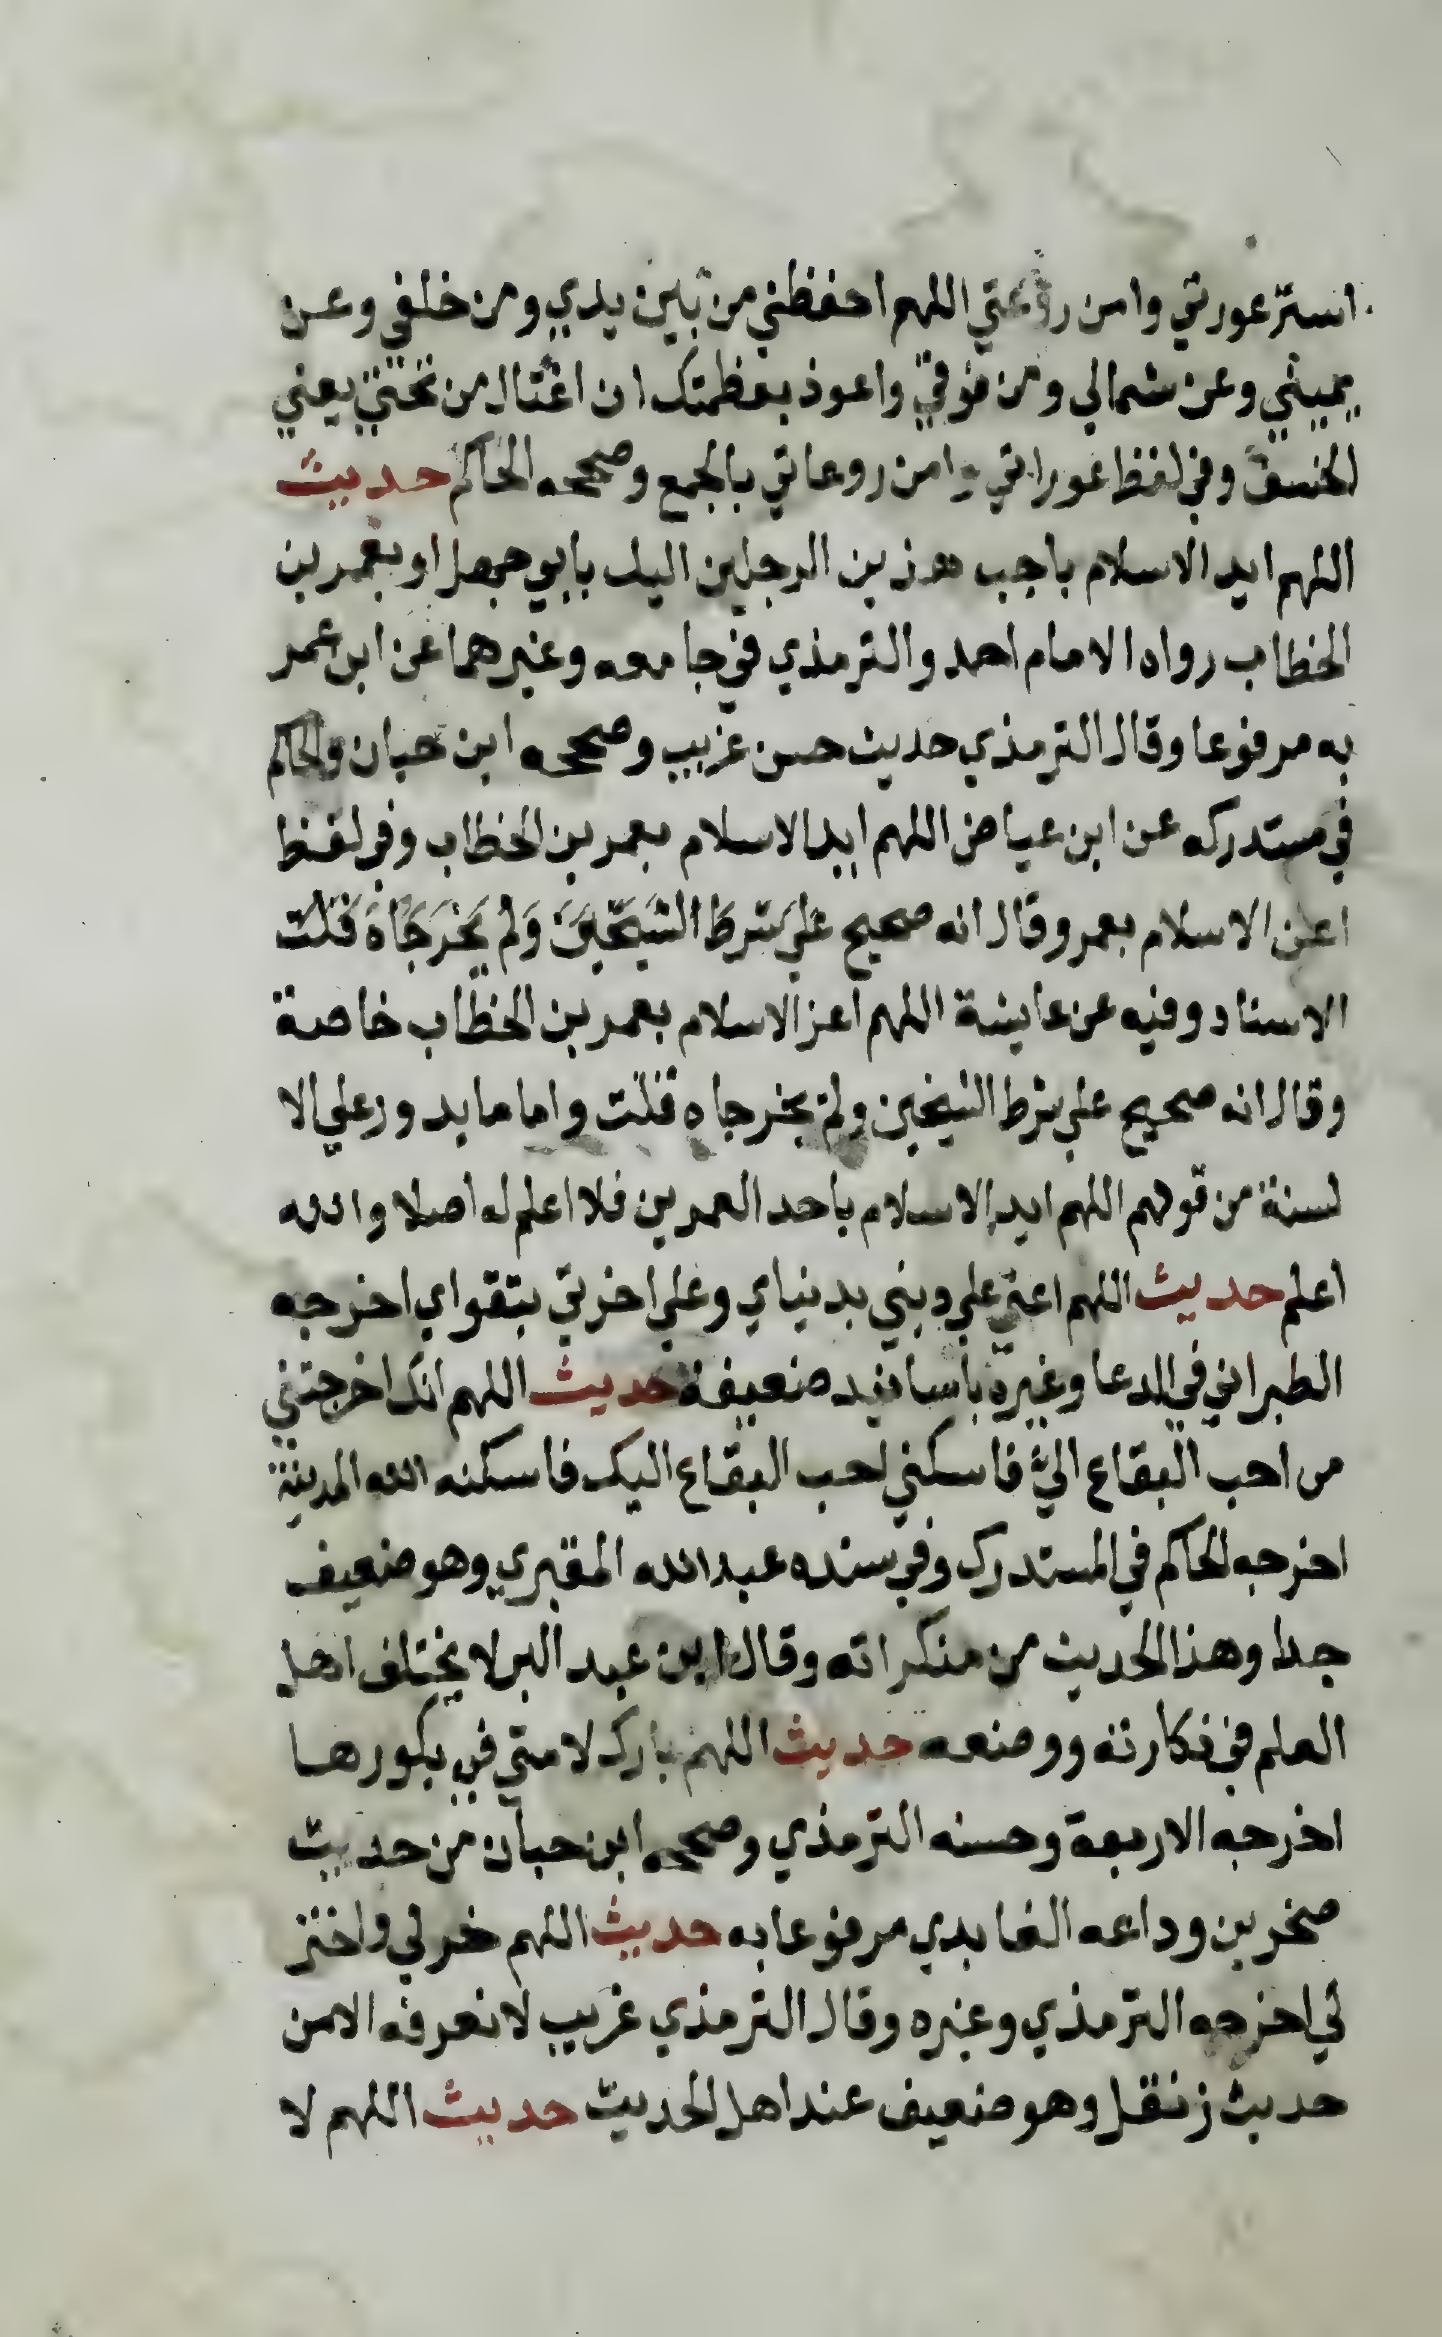 استر عورتي وامن روعتي اللهم احفظني من بين يدي ومن خلفي وعن
يميني وعن شمالي ومن فوقي واعوذ بعظمتك ان اغتال من تحتي يعني
الخسف وفي لفظ عوراتي وامن روعاتي بالجمع وصححه الحاكم حديث
اللهم ايد الاسلام باحب هذين الرجلين اليك بابي جهل او بعمر بن
الخطاب رواه الامام احمد والترمذي في جامعه وغيرهما عن ابن عمر
به مرفوعا وقال الترمذي حديث حسن غريب وصححه ابن حبان والحاكم
في مستدركه عن ابن عياض اللهم ايد الاسلام بعمر بن الخطاب وفي لفظ
اعن الاسلام بعمر وقال انه صحيح علي شرط الشيخين ولم يخرجاه قلت
الاسناد وفيه عن عايشة اللهم اعز الاسلام بعمر بن الخطاب خاصة
وقال انه صحيح علي شرط الشيخين ولم يخرجاه قلت واما ما يدور علي الا
لسنة من قولهم اللهم ايد الاسلام باحد العمرين فلا اعلم له اصلا والله
اعلم حديث اللهم اعني علي ديني بدنياي وعلي اخرتي بتقواي اخرجه
الطبراني في الدعا وغيره باسانيد ضعيفة حديث اللهم انك اخرجتني
من احب البقاع الي فاسكني احب البقاع اليك فاسكنه الله المدينة
اخرجه الحاكم في المستدرك وفي سنده عبد الله المقبري وهو ضعيف
جدا وهذا الحديث من منكراته وقال ابن عبد البر لا يختلف اهل
العلم في نكارته ووضعه حديث اللهم بارك لامتي في بكورها
اخرجه الاربعة وحسنه الترمذي وصححه ابن حبان من حديث
صخر بن وداعه الغابدي مرفوعا به حديث اللهم خر لي واختر
لي اخرجه الترمذي وغيره وقال الترمذي غريب لا نعرفه الا من
حديث زنفل وهو ضعيف عند اهل الحديث حديث اللهم لا